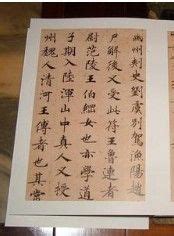 幽州刺史劉虞別駕漁陽趙
尸解後又受此符王魯連者
尉范陵王伯綱女也亦學道
子期入陸渾山中真人又授
州魏人清河王傳者也其常